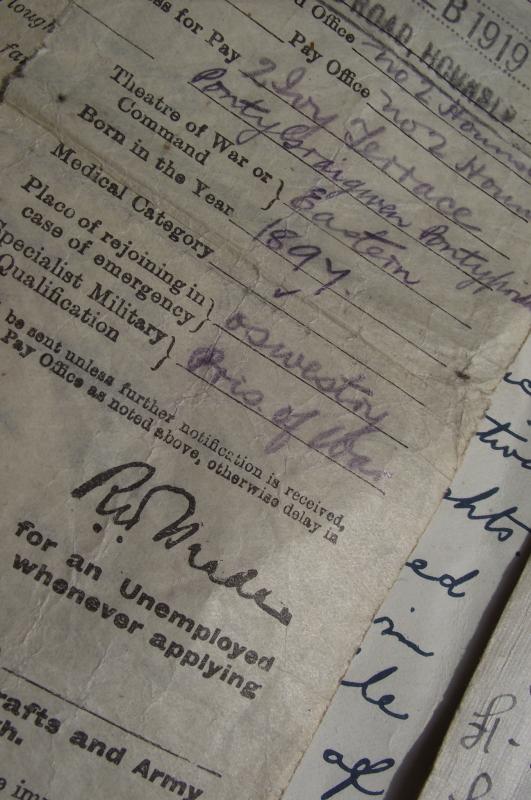 lough
fai
d Office No 2 Houns
ROAD, HOUNSL
B 1919
ss for Pay
Pay Office No 2 Hou
2 Ivy Terrace
Pontygraigwen Pontypri
Theatre of War or } Eastern
Command
Born in the Year 1897
Medical Category ✓
Place of rejoining in } Oswestry
case of emergency
Specialist Military } Pris. of War
Qualification
be sent unless further notification is received,
Pay Office as noted above, otherwise delay in
for an Unemployed
whenever applying
rafts and Army
ch.
e im
two
hts.
ed
in
le
of